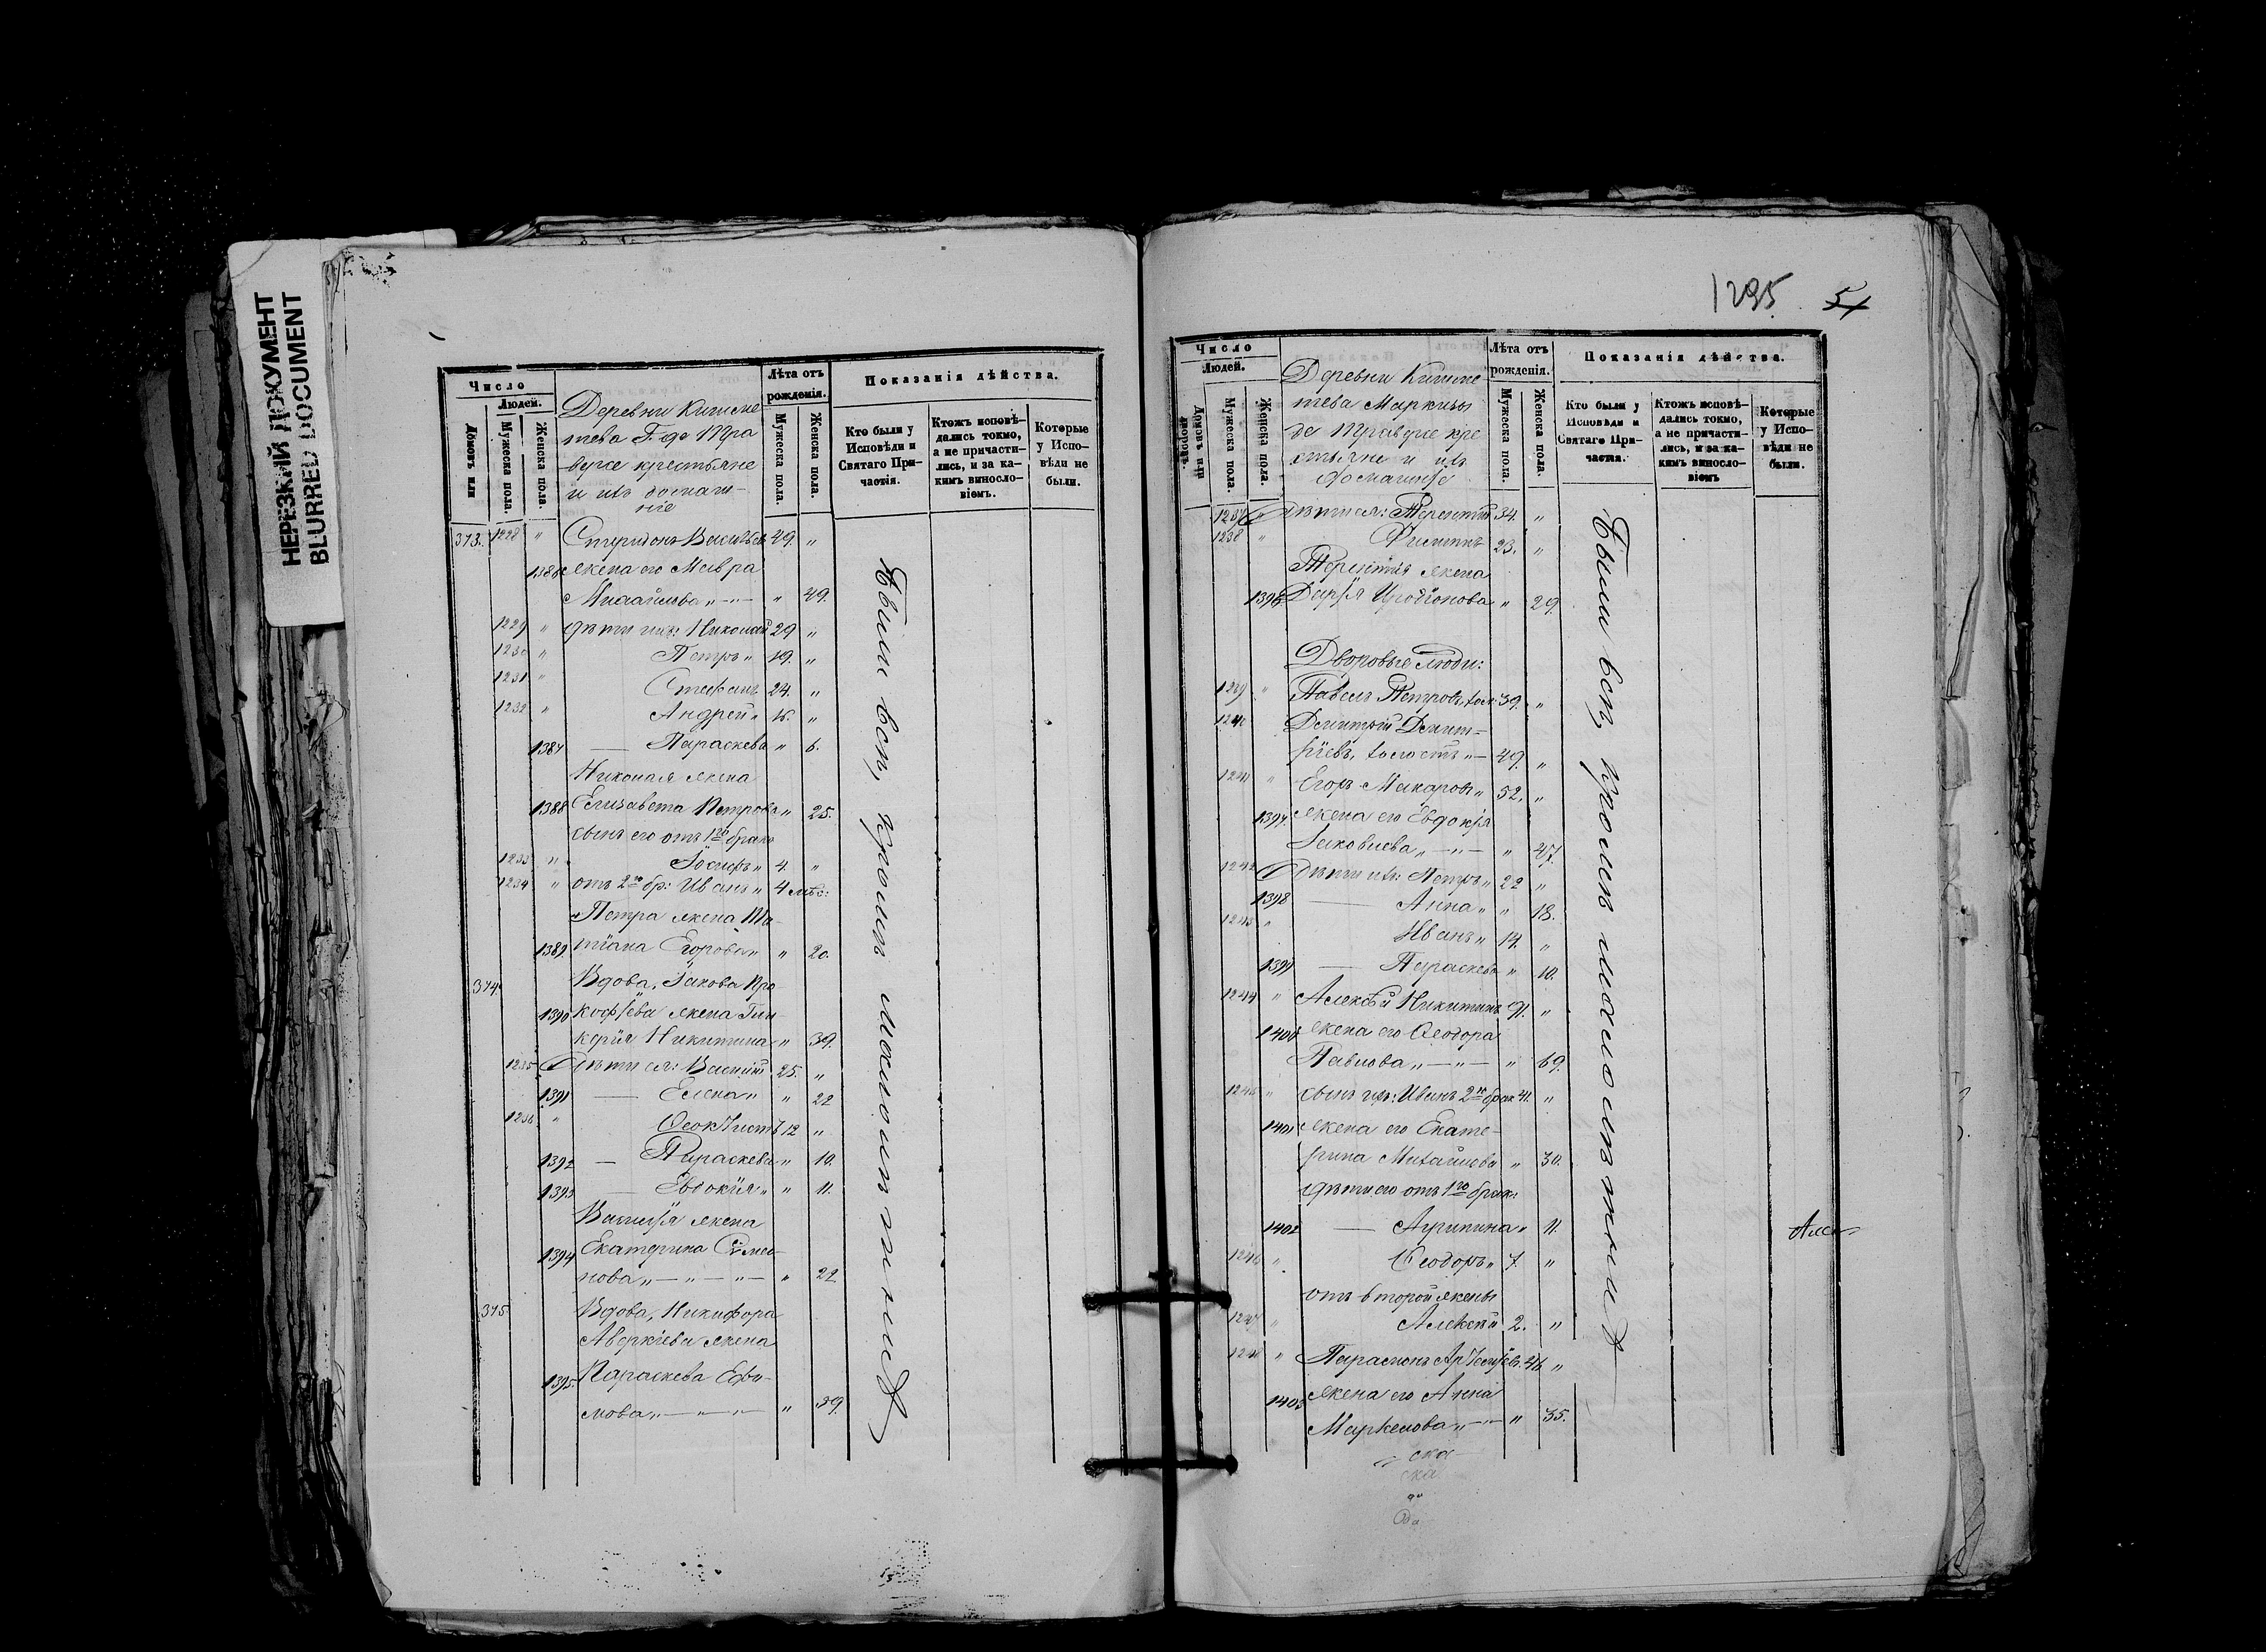 НЕРЕЗКИЙ ДОКУМЕНТ
BLURRED DOCUMENT
Число
Людей.
Домовъ или
Мужеска пола.
Женска пола.
Деревни Кишке-
тева Г. де Тра
версе крестьяне
и ихъ домаш-
ніе
Лѣта отъ
рожденія.
Мужеска пола.
Женска пола.
Показанія дѣйства.
Кто были у
Исповѣди и
Святаго При-
частія.
Ктожъ исповѣ-
дались токмо,
а не причасти-
лись, и за ка-
кимъ виносло-
віемъ.
Которые
у Испо-
вѣди не
были.
373. 1228 " Спиридонъ Васильевъ 49. "
1386 жена его Мавра
Михайлова " — " — " 49.
1229 " дѣти ихъ: Николай 29 "
1230 " Петръ " 19. "
1231 " Стефанъ 24. "
1232 " Андрей " 16. "
1387 — Параскева " 6.
Николая жена
1388 Елизавета Петрова " 25.
сынъ его отъ 1го брака
1233 " Іосифъ " 4. "
1234 " отъ 2го бр: Иванъ " 4 мѣс:
Петра жена Та-
1389 тіана Егорова " " 20.
374 Вдова, Іакова Про-
1390 кофьева жена Гли-
керія Никитина " 39.
1235 Дѣти ея: Василій 25. "
1391 — Елена " " 22
1236 " Ѳеоктистъ 12 "
1392 — Параскева " 10.
1393 — Евдокія " " 11.
Василія жена
1394 Екатерина Симео-
нова " — " — " — " 22
375 Вдова, Никифора
Аверкіева жена
1395. Параскева Ефи-
мова " — " — " — " 39.
Были всѣ, кромѣ малолѣтнихъ
1295 54
Число
Людей.
Домовъ или
Мужеска пола.
Женска пола.
Деревни Кишке-
тева Маркизы
де Траверсе кре
стьяне и ихъ
домашніе
Лѣта отъ
рожденія.
Мужеска пола.
Женска пола.
Показанія дѣйства.
Кто были у
Исповѣди и
Святаго При-
частія.
Ктожъ исповѣ-
дались токмо,
а не причасти-
лись, и за ка-
кимъ виносло-
віемъ
Которые
у Испо-
вѣди не
были.
1237 Дѣти ея: Терентій 34. "
1238 " Филиппъ 23. "
Терентія жена
1396 Дарья Иродіонова " 29.
Дворовые люди:
1239 " Павелъ Петровъ, хол: 39. "
1240 Димитрій Димит-
ріевъ, холостъ " — 49. "
1241 " Егоръ Макаровъ " 52. "
1397. жена его Евдокія
Іаковлева " — " — " 47.
1242 Дѣти ихъ: Петръ " 22 "
1398 — Анна " " 18.
1243 " Иванъ " 14. "
1399 — Параскева " 10.
1244 " Алексѣй Никитинъ 91. "
1400 жена его Ѳеодора
Павлова " — " — " 69.
1245 " сынъ ихъ: Иванъ 2м брак 41. "
1401 жена его Екате-
рина Михайлова " 30.
дѣти его отъ 1го брак:
1402 — Агрипина " 11.
1246 " Ѳеодоръ " 7. "
отъ второй жены
1247 " Алексѣй 2. "
1248 " Парамонъ Арсеньевъ. 46 "
1403 жена его Анна
Маркелова " — " — " 35.
Были всѣ, кромѣ малолѣтнихъ
ска
ска